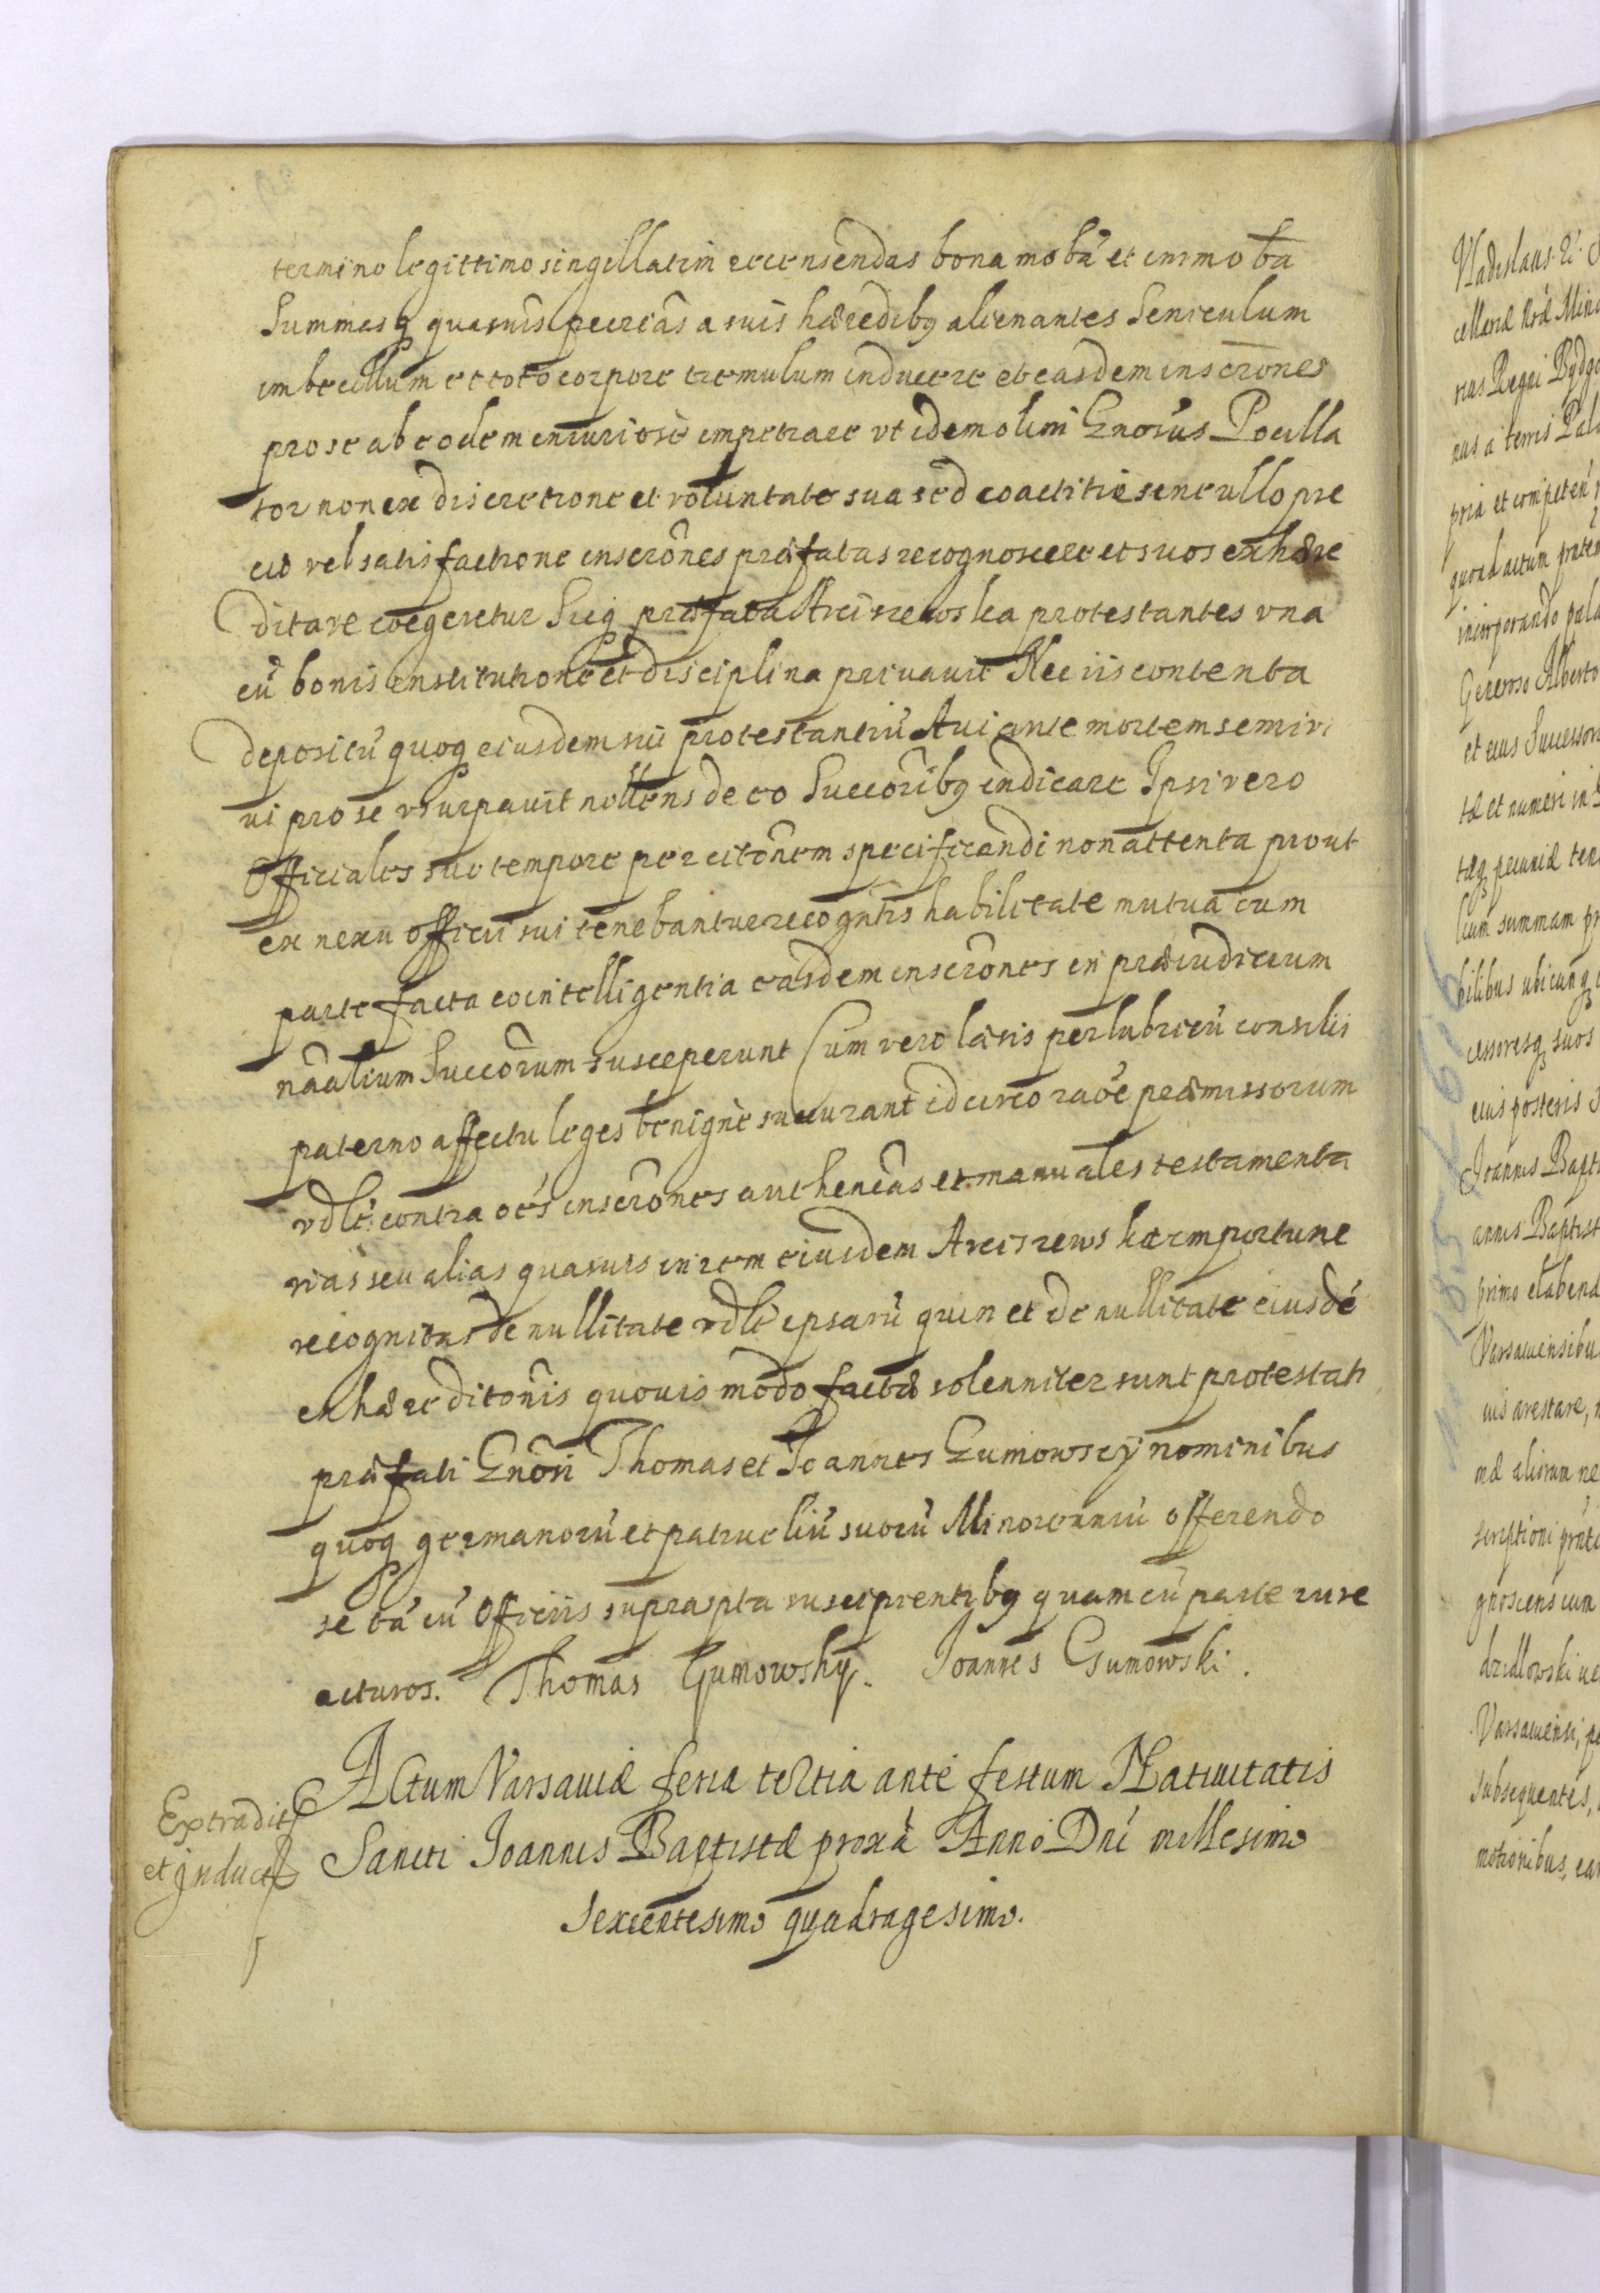 termino legittimo singillatim recensendas bona mobã et immobã
Summasq quasuis pecrias a suis hæredibq alienantes Seniculum
imbecillum et toto corpore tremulum inducere et easdem inscrõnes
pro se ab eodem iniuriosè impetrare vt idem olim Gnosus Pocilla
tor non ex discretione et voluntate sua sed coactitiè sine ullo pre
cio vel satisfactione inscrõnes præfatas recognoscere et suos exhære
ditare coegeretur Sicq præfata Arciszewska protestantes vna
cũ bonis institutione et disciplina priuauit Nec iis contenta
depositũ quoq eiusdem sui protestantiũ Aui ante mortem semivi
ui pro se vsurpauit nollens de eo Succoribq indicare Ipsi vero
Officiales suo tempore per citõnem specificandi non attenta prout
ex nexu officii sui tenebantur recogntis habilitate mutua cum
parte facta cointelligentia easdem inscrõnes in præiudicium
nãalium Succorum susceperunt Cum vero læsis per lubricũ consilii
paterno affectu leges benignè succurant idcirco raõe præmissorum
vdlt contra oẽs inscrõnes authencas et manuales testamenta
rias seu alias quasuis in rem eiusdem Arciszewskæ importune
recognitas de nullitate vdlt ipsarũ quin et de nullitate eiusdẽ
exhæreditõnis quouis modo factæ solenniter sunt protestati
præfati Gnõsi Thomas et Joannes Gumowscÿ nominibus
quoq germanorũ et patrueliũ suorũ Minorenniũ offerendo
se tã cũ Officiis suprasptã suscipientibq quam cũ parte iure
acturos. Thomas Gumowsky. Joannes Gumowski.
Actum Varsauiæ feria tertia ante festum Natiuitatis
Sancti Joannis Baptistæ proxã Anno Dni millesimo
sexcentesimo quadragesimo.
Extradit
et induct
Vladislaus
rius Regni Bydgo
nus a terris
pria et competen
quoad actum
incorporando
Generoso Alberto
et eius Successor
et numeri in
tæq pecuniæ
summam
bilibus ubicunq
cessoresq suos
eius posteris
Joannis Bapt
annis Baptist
primo
Varsauiensibus
uis arestare,
gnoscens cum
Varsauiensi,
subsequentes,
motionibus,